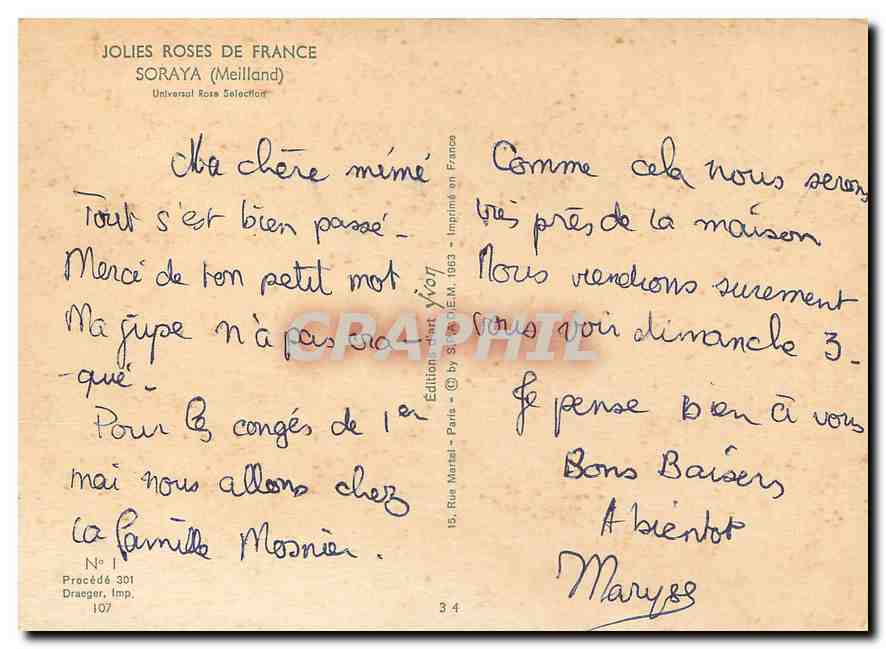 JOLIES ROSES DE FRANCE
SORAYA (Meilland)
Universal Rose Selection
Ma chère mémé
Tout s'est bien passé -
Merci de ton petit mot
Ma jupe n'a pas cra-
-qué -
Pour les congés de 1er
mai nous allons chez
la famille Mosnier.
N° 1
Procédé 301
Draeger, Imp.
107
15, Rue Martel - Paris - © by S.P.A.D.E.M. 1963 - Imprimé en France
Éditions d'art yvon
CRAPHIL
Comme cela nous serons
très près de la maison
Nous viendrons surement
vous voir dimanche 3 -
Je pense bien à vous
Bons Baisers
A bientot
Maryse
3 4